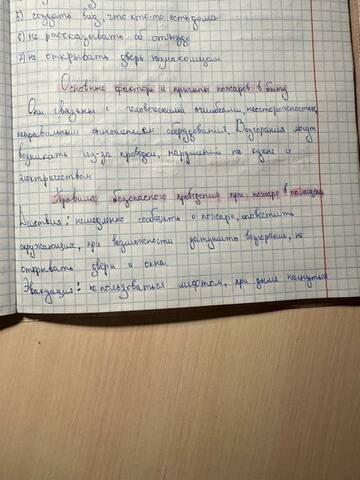 5) создать вид, что кто-то есть дома
6) не рассказывать об отъезде
7) не открывать дверь незнакомцам
Основные факторы и причины пожаров в быту
Они связаны с человеческими ошибками, неосторожностью,
неправильным оборудования. Возгорания могут
возникать из-за проводки, нарушений на кухне и
электричеством
Правила безопасного проведения при пожаре в помещении
Действия: немедленно сообщить о пожаре, оповестить
окружающих, при возможности затушить возгорание, не
открывать двери и окна.
Эвакуация: не пользоваться лифтом, при дыме нагнуться